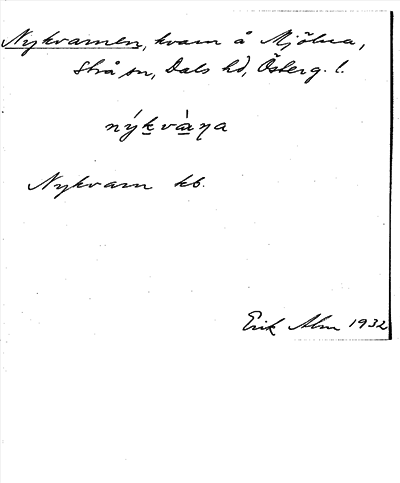 Nykvarnen, kvarn å Mjölna,
Strå sn, Dals hd, Österg. l.
nýkvàṇa
Nykvarn kb.
Erik Alm 1932